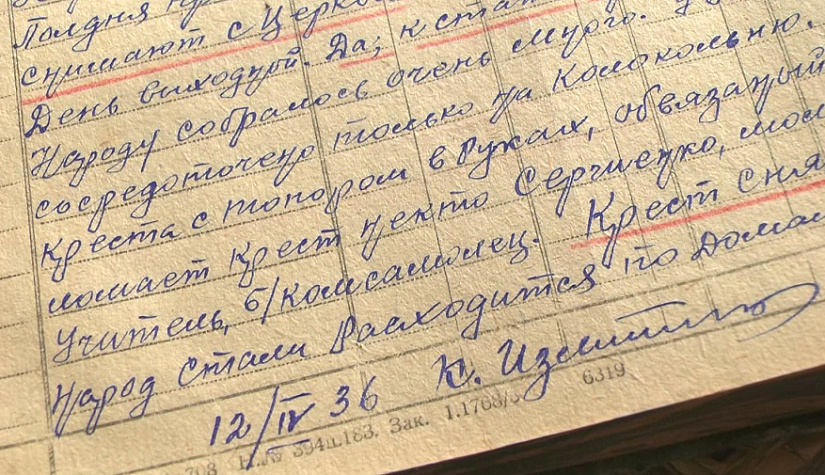 Полдня
снимают с Церкв
День выходной. Да, к стат
Народу собралось очень много.
сосредоточено только на Колокольню.
Креста с топором в руках, обвязаный
ломает Крест некто Сергиенко, мол
Учитель, б/комсамолец. Крест сня
Народ стали Расходится по Домам
12/IV 36 К.
394п.183. Зак. 1.1768/ 6319